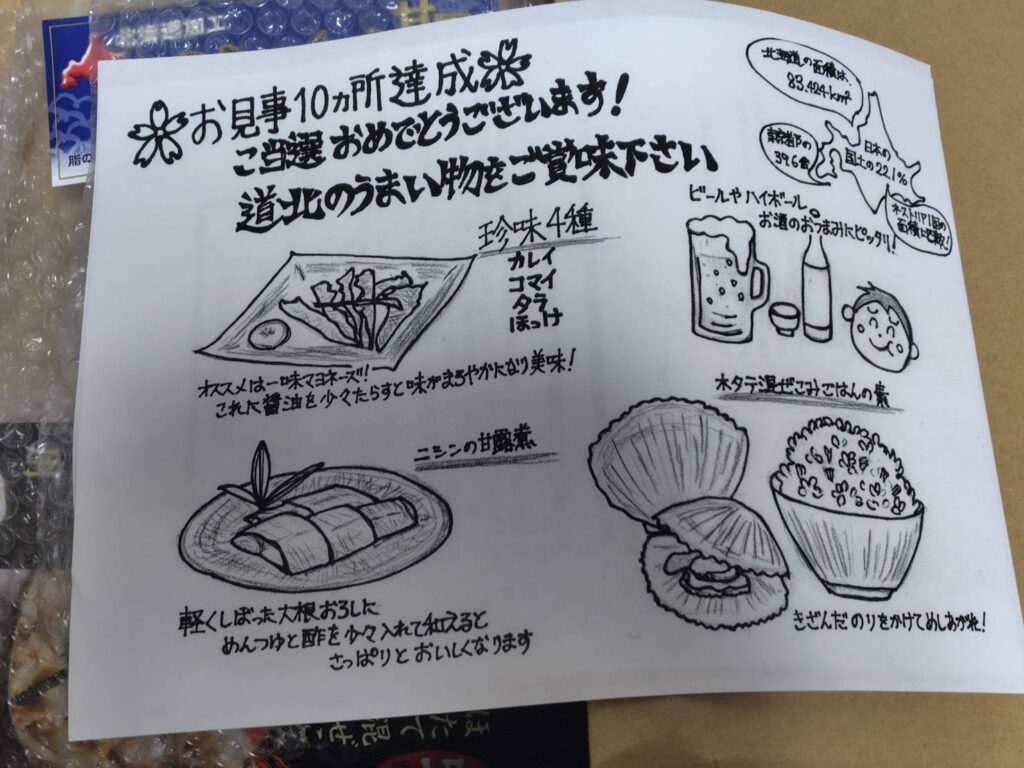 お見事10ヵ所達成
ご当選おめでとうございます!
道北のうまい物をご賞味下さい
北海道の面積は、
83.424km²
日本の
国土の22.1%
珍味4種
カレイ
コマイ
タラ
ほっけ
ビールやハイボール、
お酒のおつまみにピッタリ!
オススメは一味マヨネーズ!!
これに醤油を少々たらすと味がまろやかになり美味!
ニシンの甘露煮
軽くしぼった大根おろしに
めんつゆと酢を少々入れて和えると
さっぱりとおいしくなります
ホタテ混ぜこみごはんの素
きざんだのりをかけてめしあがれ!
ほたて混ぜ
脂の